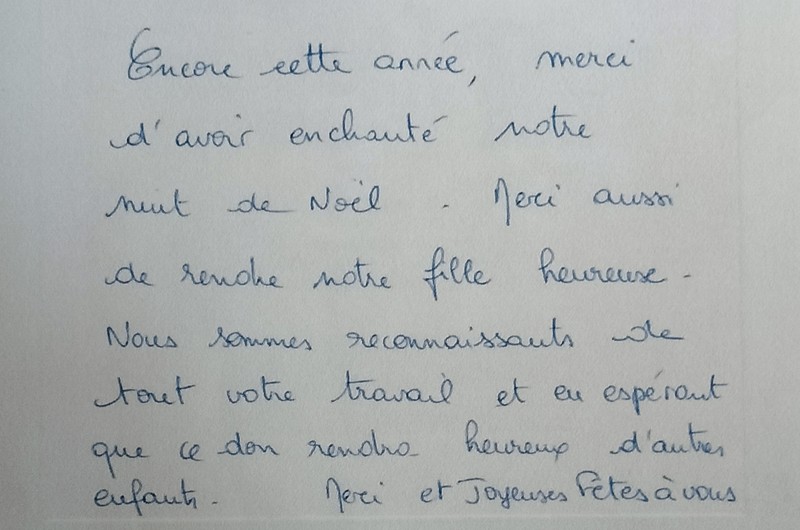 Encore cette année, merci
d'avoir enchanté notre
nuit de Noël. Merci aussi
de rendre notre fille heureuse.
Nous sommes reconnaissants de
tout votre travail et en espérant
que ce don rendra heureux d'autres
enfants. Merci et Joyeuses Fêtes à vous